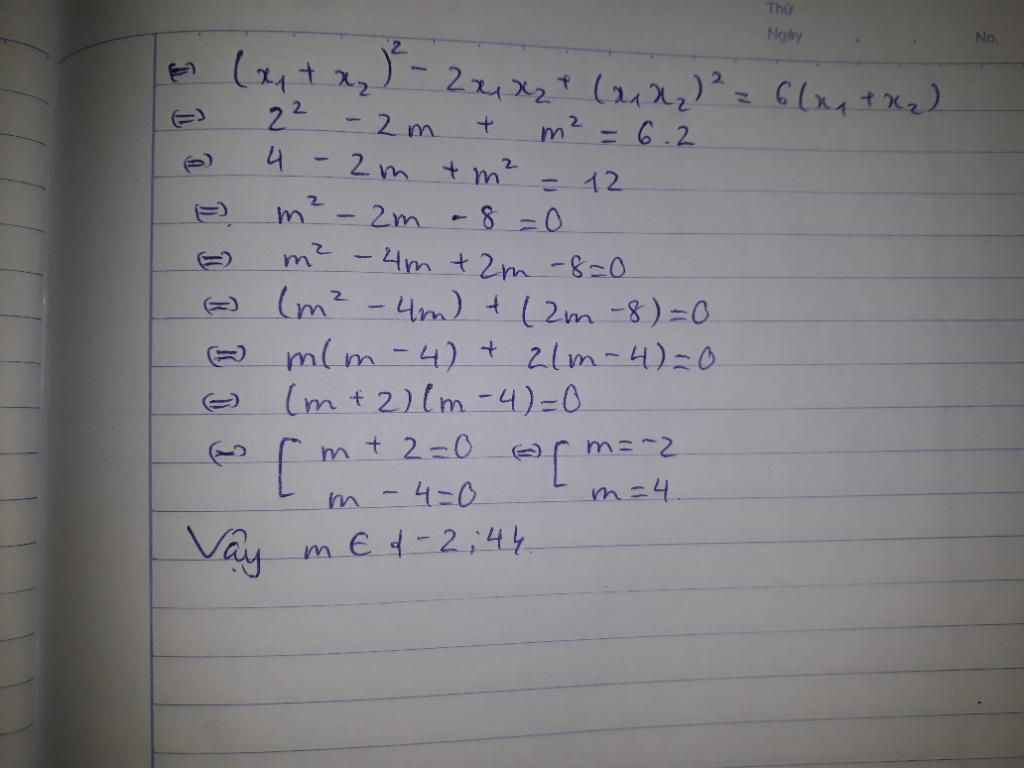 Thứ
Ngày . . No.
⇔ (x₁ + x₂)² - 2x₁x₂ + (x₁x₂)² = 6(x₁ + x₂)
⇔ 2² - 2m + m² = 6.2
⇔ 4 - 2m + m² = 12
⇔ m² - 2m - 8 = 0
⇔ m² - 4m + 2m - 8 = 0
⇔ (m² - 4m) + (2m - 8) = 0
⇔ m(m - 4) + 2(m - 4) = 0
⇔ (m + 2)(m - 4) = 0
⇔ [ m + 2 = 0 ⇔ [ m = -2
m - 4 = 0 m = 4.
Vậy m ∈ {-2; 4}.